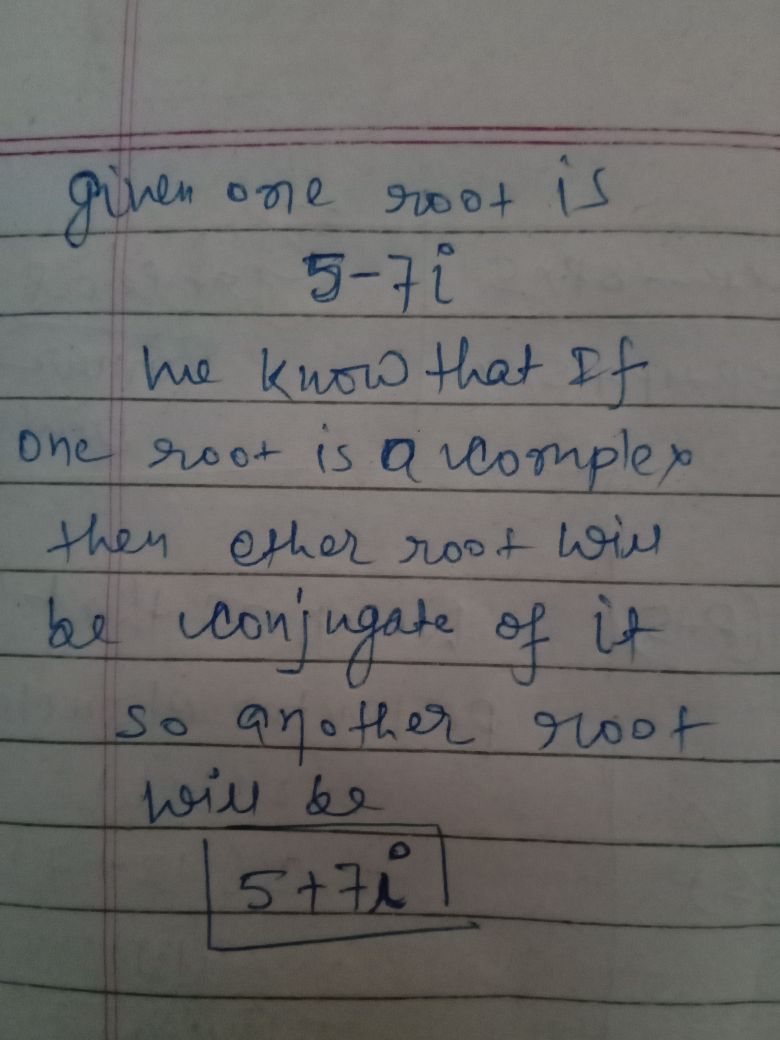 given one root is
5-7i
We know that If
one root is a complex
then other root will
be conjugate of it
so another root
will be
5+7i